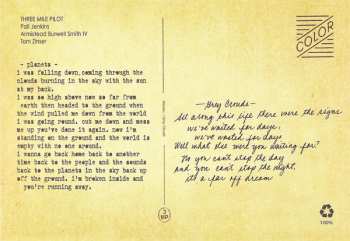 THREE MILE PILOT
Pall Jenkins
Armistead Burwell Smith IV
Tom Zinser
COLOR
- planets -
i was falling down.coming through the
clouds burning in the sky with the sun
at my back.
i was so high above now so far from
earth then headed to the ground when
the wind pulled me down from the world
i was going round. cut me down and mess
me up you've done it again. now i'm
standing on the ground and the world is
empty with no one around.
i wanna go back home back to another
time back to the people and the sounds
back to the planets in the sky back up
off the ground. i'm broken inside and
you're running away.
-Grey Clouds-
All along this life there were the signs
we've waited for days,
we've waited for days
Well what else were you waiting for?
No you can't stop the day
and you can't stop the night,
it's a far off dream
3
MP
100%